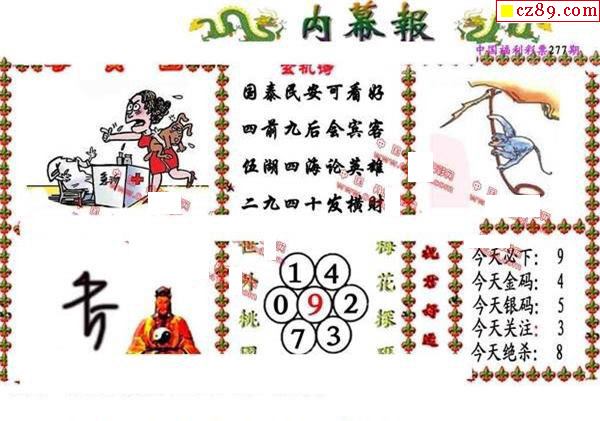 cz89.com
内幕報
中国福利彩票277期
玄机诗
国泰民安可看好
四前九后会宾客
伍湖四海论英雄
二九四十发横财
世外桃园
梅花探码
1 4
0 9 2
7 3
祝君好运
今天必下: 9
今天金码: 4
今天银码: 5
今天关注: 3
今天绝杀: 8